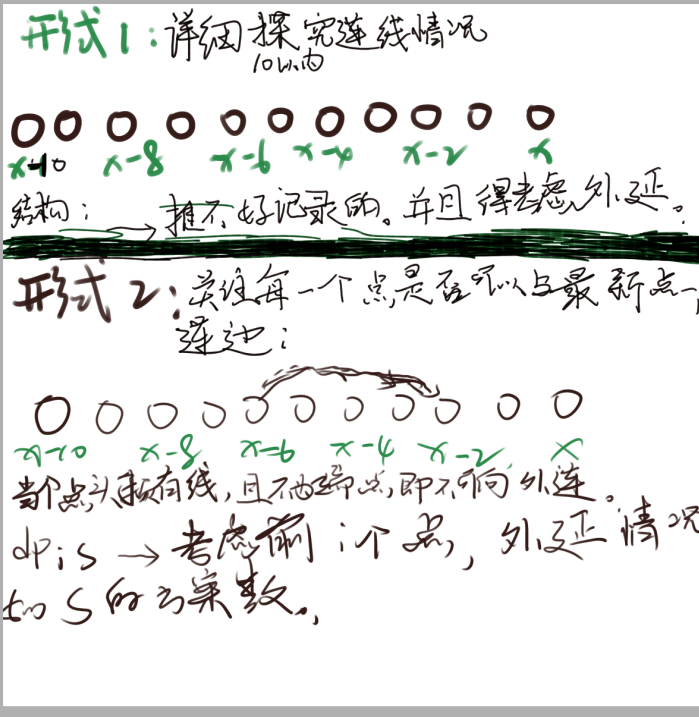 形式1:详细探究连线情况
10以内
x-10 x-8 x-6 x-4 x-2 x
结构: → 挺不好记录的。并且得考虑外延。
形式2:关维每一个点是否可以与最新点一
连边:
x-10 x-8 x-6 x-4 x-2 x
当个点头顶有线,且不为端点,即不可向外连。
dpis → 考虑前i个点,外延情况
如S的方案数。